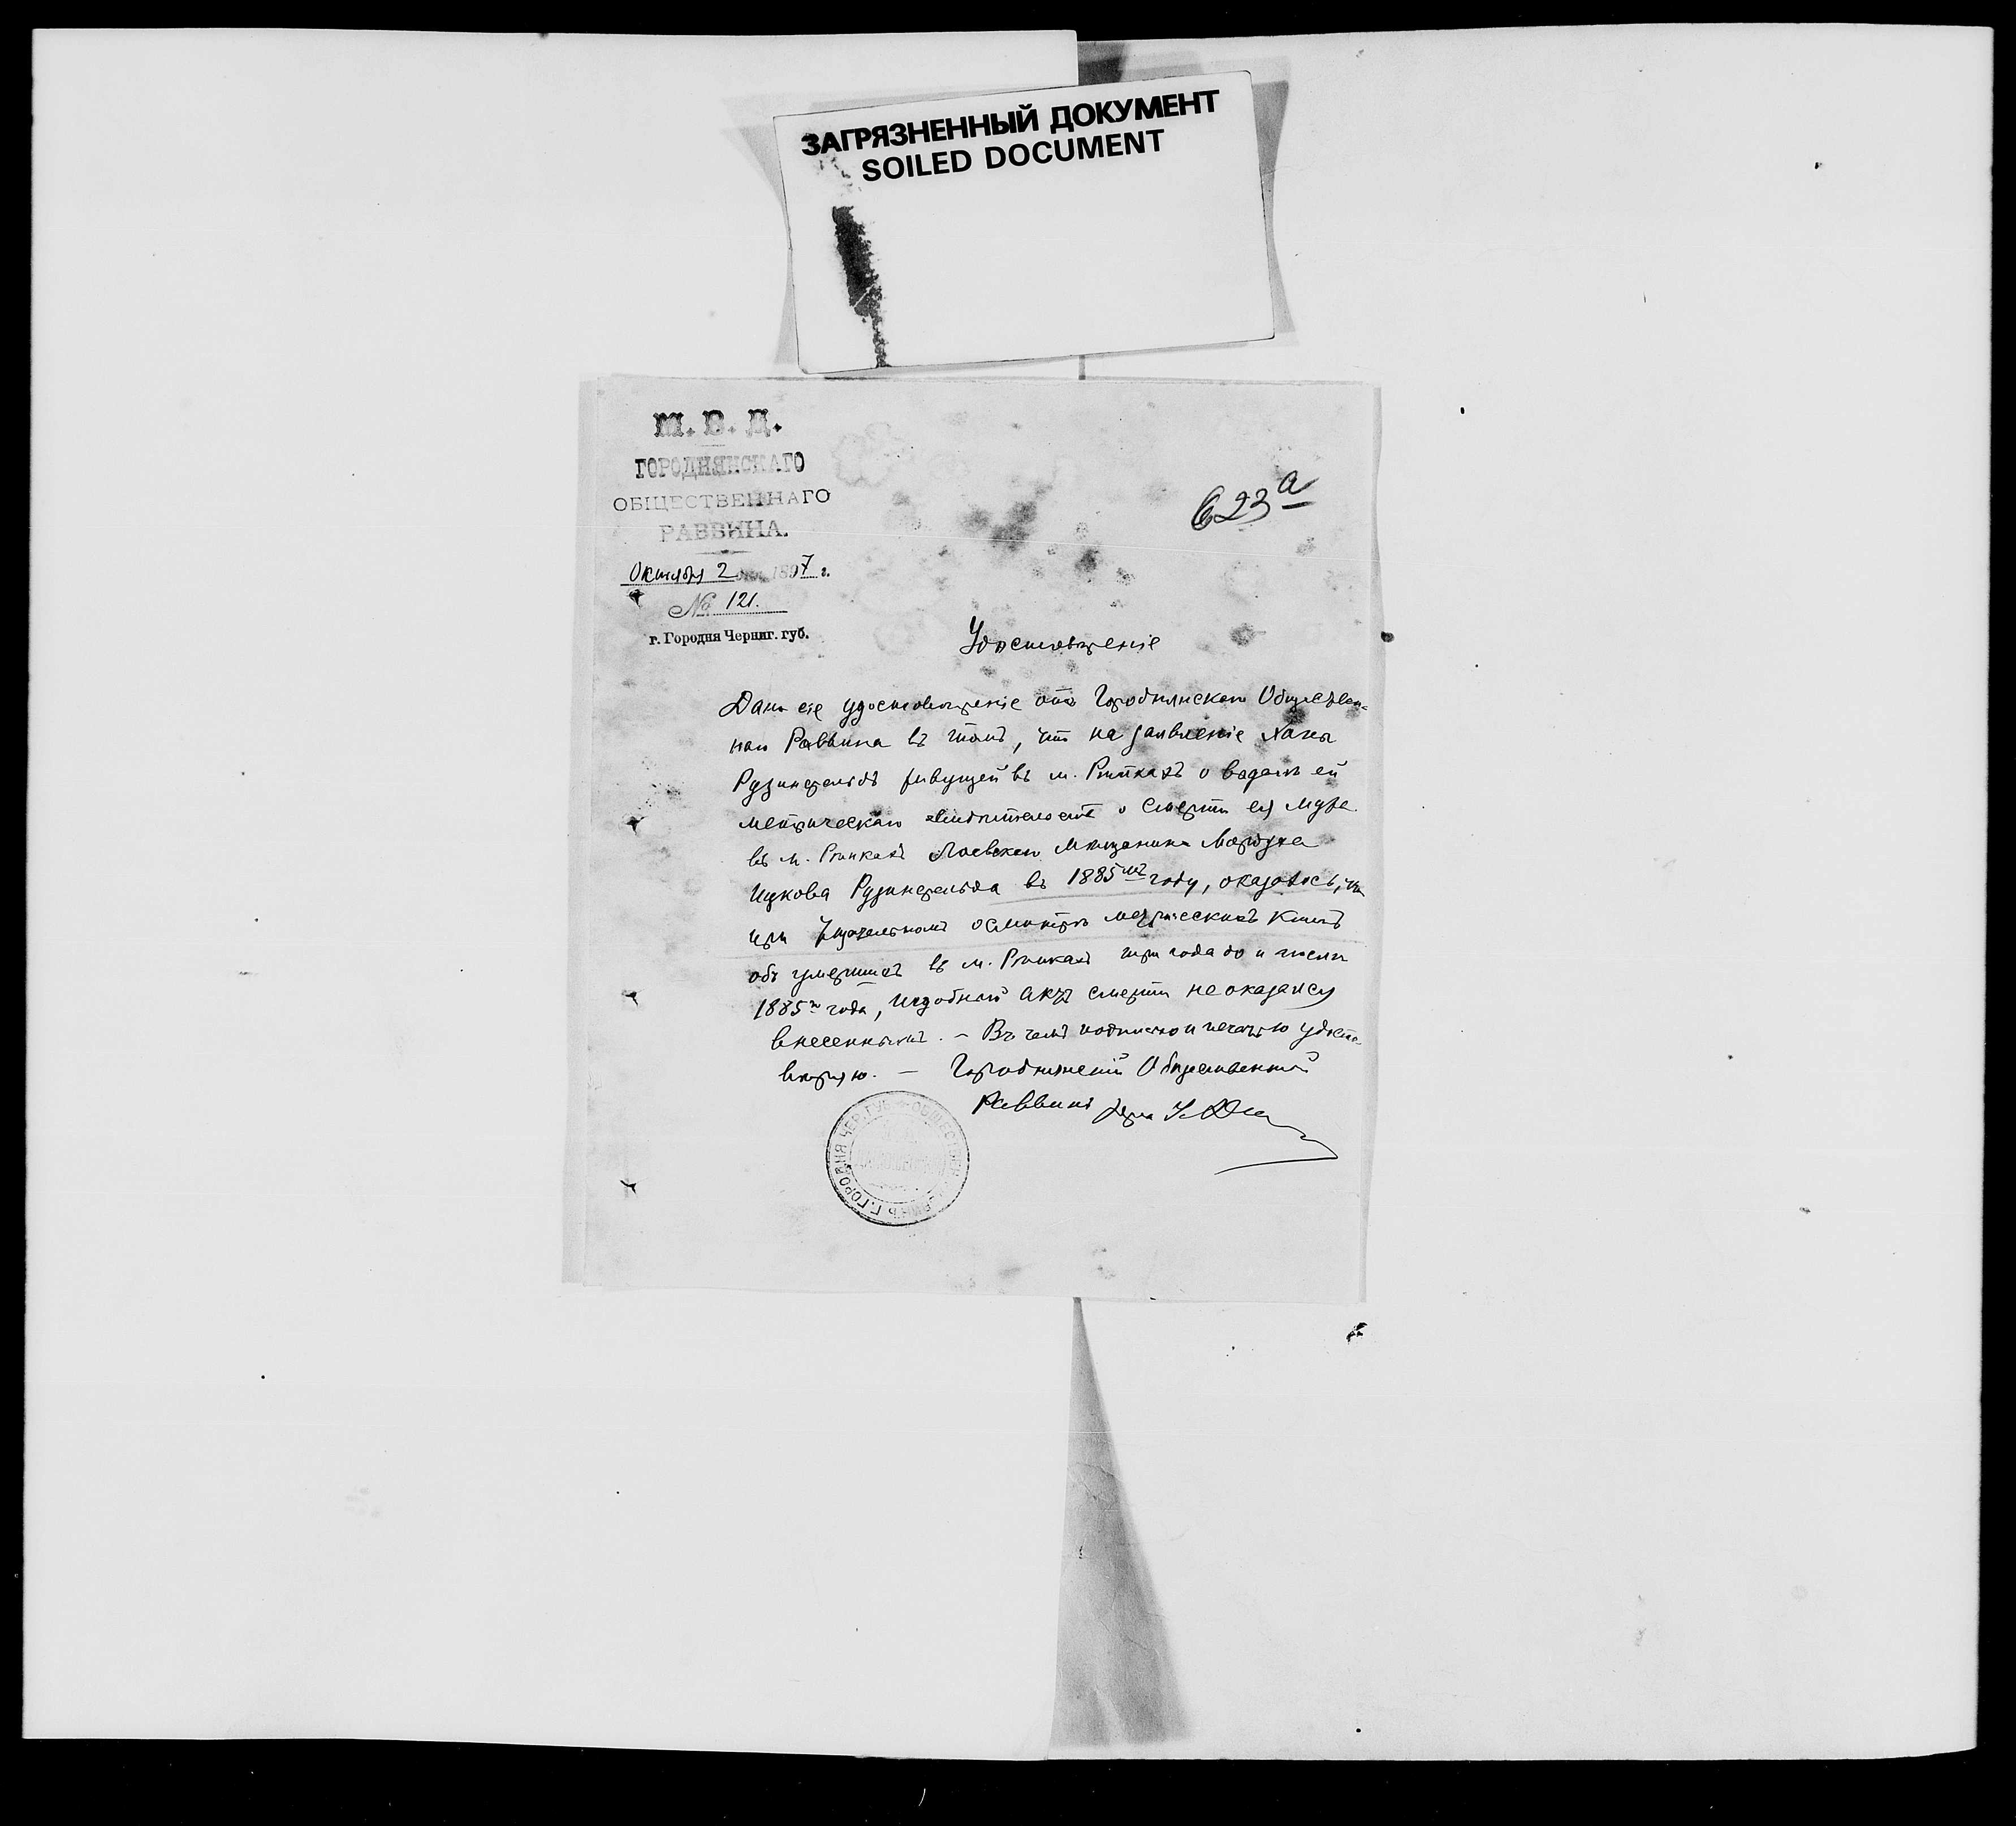 ЗАГРЯЗНЕННЫЙ ДОКУМЕНТ
SOILED DOCUMENT
М. В. Д.
ГОРОДНЯНСКАГО
ОБЩЕСТВЕННАГО
РАВВИНА.
Октября 2 1897 г.
№ 121.
г. Городня Черниг. губ.
623 а
Удостовѣреніе
Дано сіе удостовѣреніе отъ Городнянскаго Обществен-
наго Раввина въ томъ, что на заявленіе Ханы
Рузинфельдъ живущей въ м. Рѣпкахъ о выдачѣ ей
метрическаго свидѣтельства о смерти ея мужа
въ м. Рѣпкахъ Лоевскаго мѣщанина Мордуха
Ицкова Рузинфельда въ 1885мъ году, оказалось, что
при тщательномъ осмотрѣ метрическихъ книгъ
объ умершихъ въ м. Рѣпкахъ три года до и послѣ
1885го года, подобный актъ смерти не оказался
внесеннымъ. – Въ чемъ подписью и печатью удосто-
вѣряю. – Городнянскій Общественный
Раввинъ
Г. ГОРОДНЯ ЧЕР. ГУБ. ОБЩЕСТВЕН.